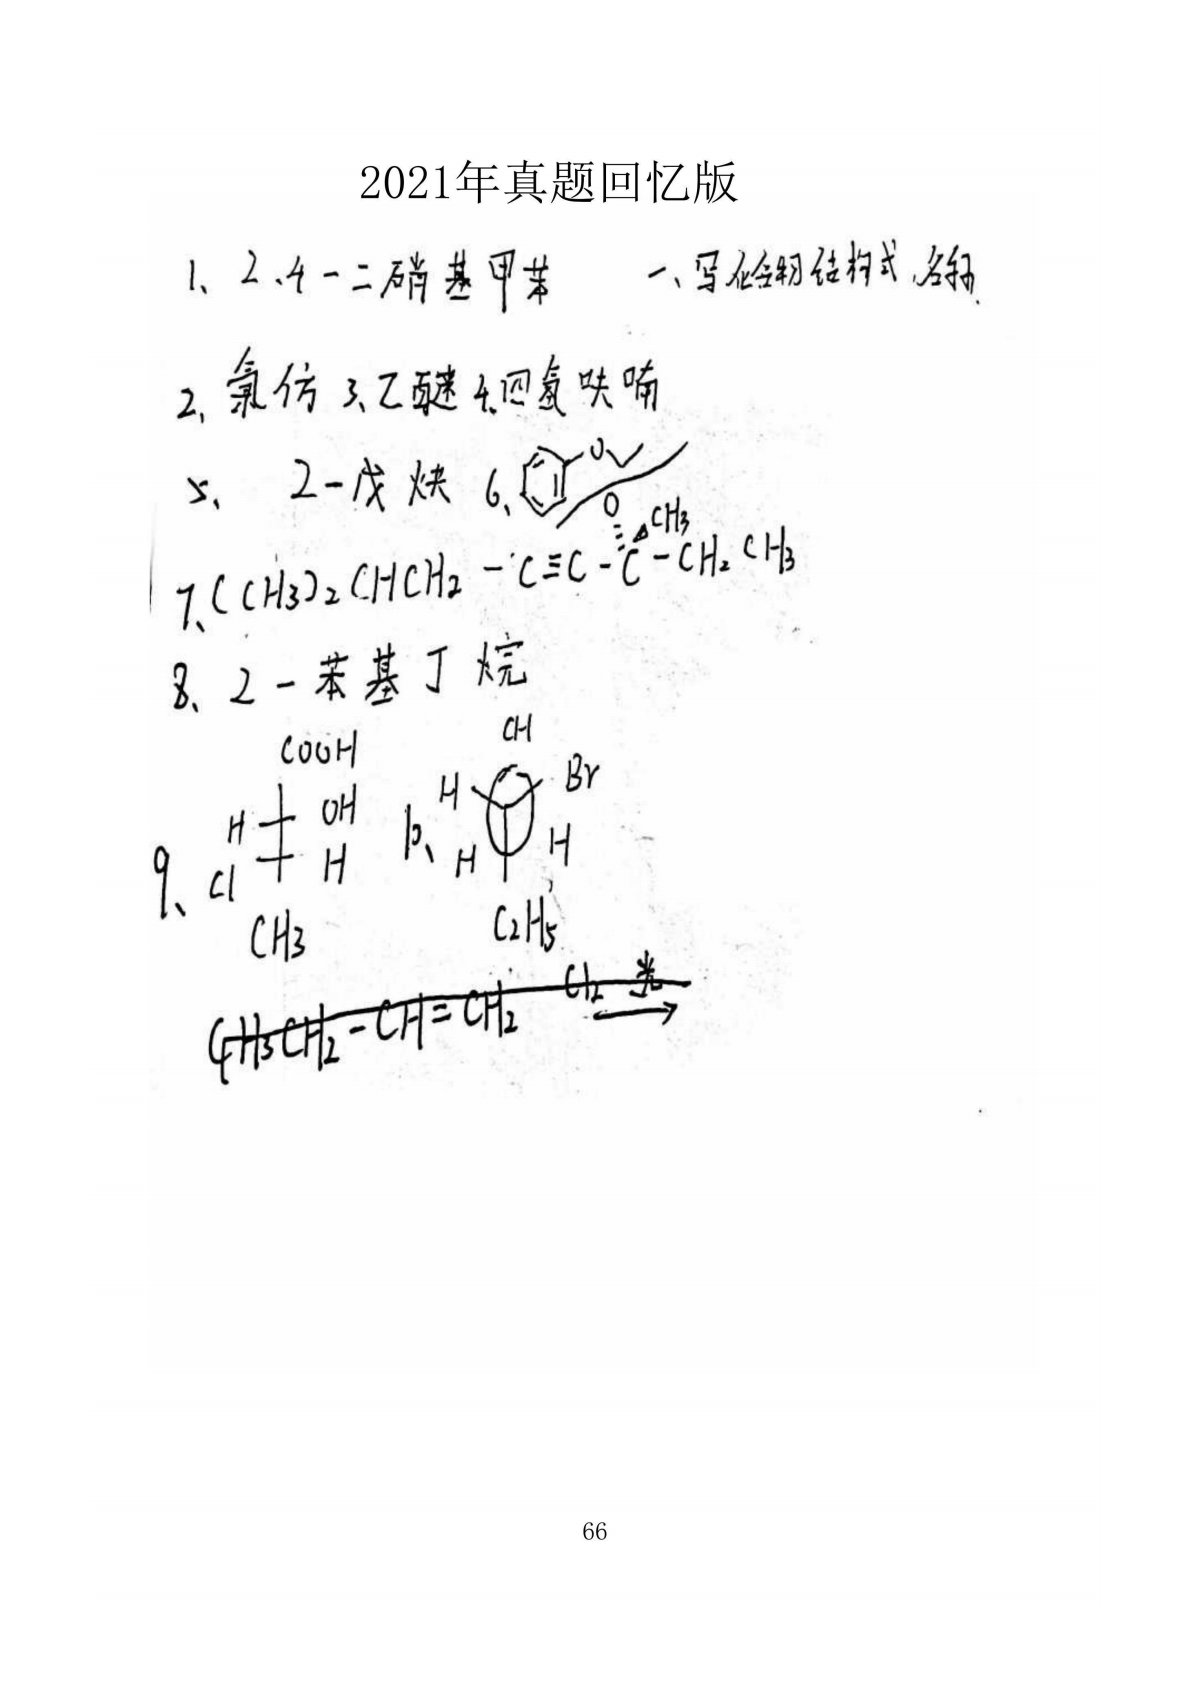 2021年真题回忆版
1、2、4-二硝基甲苯 一、写化合物结构式、名称
2、氯仿 3、乙醚 4、四氢呋喃
5、 2-戊炔 6、 O
O CH3
7、(CH3)2CHCH2-C≡C-C-CH2CH3
8、2-苯基丁烷
COOH CH
H OH 10、 H Br
9、 Cl H H H
CH3 C2H5
CH3CH2-CH=CH2 Cl2 光
66